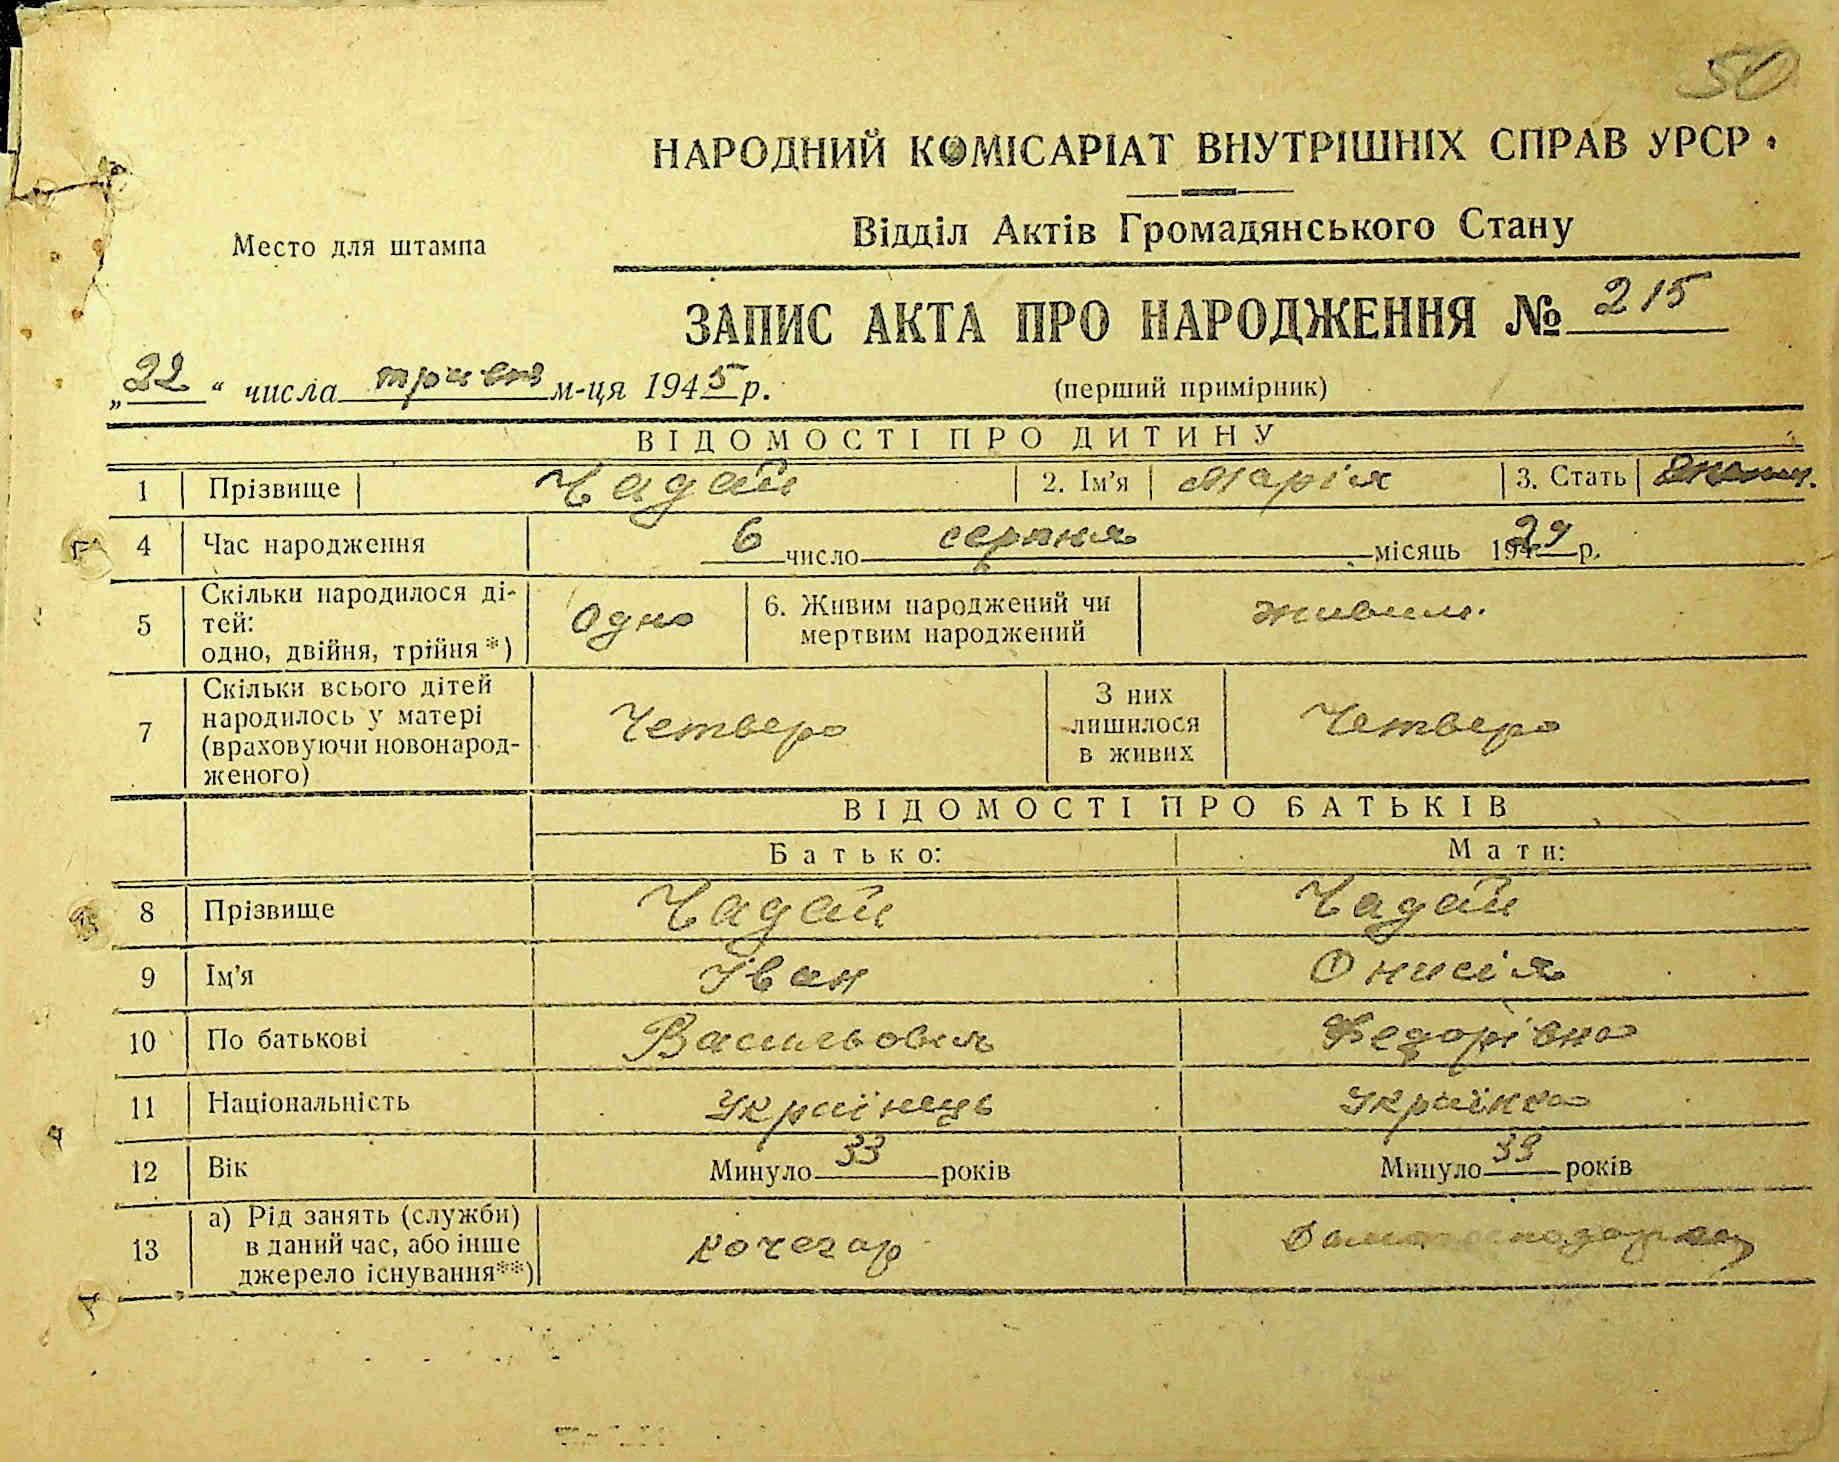 50
НАРОДНИЙ КОМІСАРІАТ ВНУТРІШНІХ СПРАВ УРСР
Место для штампа
Відділ Актів Громадянського Стану
ЗАПИС АКТА ПРО НАРОДЖЕННЯ № 215
„22“ числа травня м-ця 1945 р.
(перший примірник)
ВІДОМОСТІ ПРО ДИТИНУ
1 Прізвище Чадай 2. Ім'я Марія 3. Стать
4 Час народження 6 число серпня місяць 1929 р.
5 Скільки народилося ді-
тей:
одно, двійня, трійня*) Одно
6. Живим народжений чи
мертвим народжений живим.
7 Скільки всього дітей
народилось у матері
(враховуючи новонарод-
женого) Четверо
З них
лишилося
в живих Четверо
ВІДОМОСТІ ПРО БАТЬКІВ
Батько: Мати:
8 Прізвище Чадай Чадай
9 Ім'я Іван Онисія
10 По батькові Васильович Федорівна
11 Національність Українець Українка
12 Вік Минуло 33 років Минуло 39 років
13 а) Рід занять (служби)
в даний час, або інше
джерело існування**) кочегар Домогосподарка